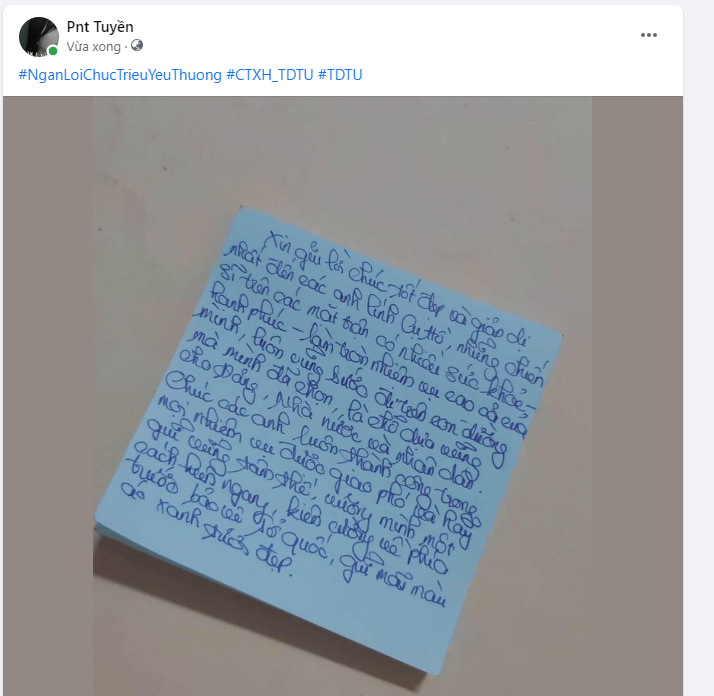 Pnt Tuyền
Vừa xong
#NganLoiChucTrieuYeuThuong #CTXH_TDTU #TDTU
Xin gửi lời chúc tốt đẹp và giản dị
nhất đến các anh lính Cụ Hồ, những chiến
sĩ trên các mặt trận có nhiều sức khỏe -
hạnh phúc - làm tròn nhiệm vụ cao cả của
mình, luôn vững bước đi trên con đường
mà mình đã chọn, là chỗ dựa vững
cho Đảng, Nhà nước và nhân dân.
Chúc các anh luôn thành công trong
mọi nhiệm vụ được giao phó và hãy
giữ vững tâm thế, cương mình một
cách hiên ngang, kiên cường về phía
trước bảo vệ Tổ quốc, giữ mãi màu
áo xanh tươi đẹp.